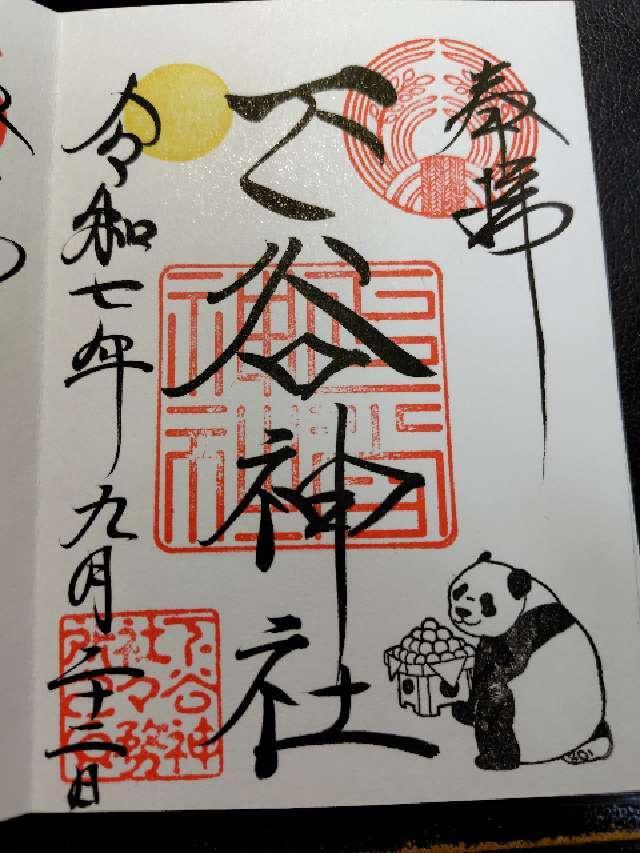 奉拝
下谷神社
令和七年九月二十二日
下谷神
社々務
所之印